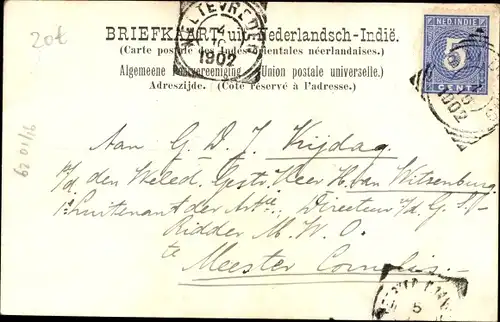 20€
BRIEFKAART uit Nederlandsch-Indië.
(Carte postale des Indes orientales néerlandaises.)
Algemeene Postvereeniging (Union postale universelle.)
Adreszijde. (Côté réservé à l'adresse.)
WELTEVREDEN
1902
NED. INDIE
5
CENT
1902
62 01/16
Aan G. D. J. Vrijdag
p/a. den Weled. Gestr. Heer H. van Witzenburg
1e Luitenant der Artie, Directeur
Ridder M. W. O.
te
Meester Cornelis.
5